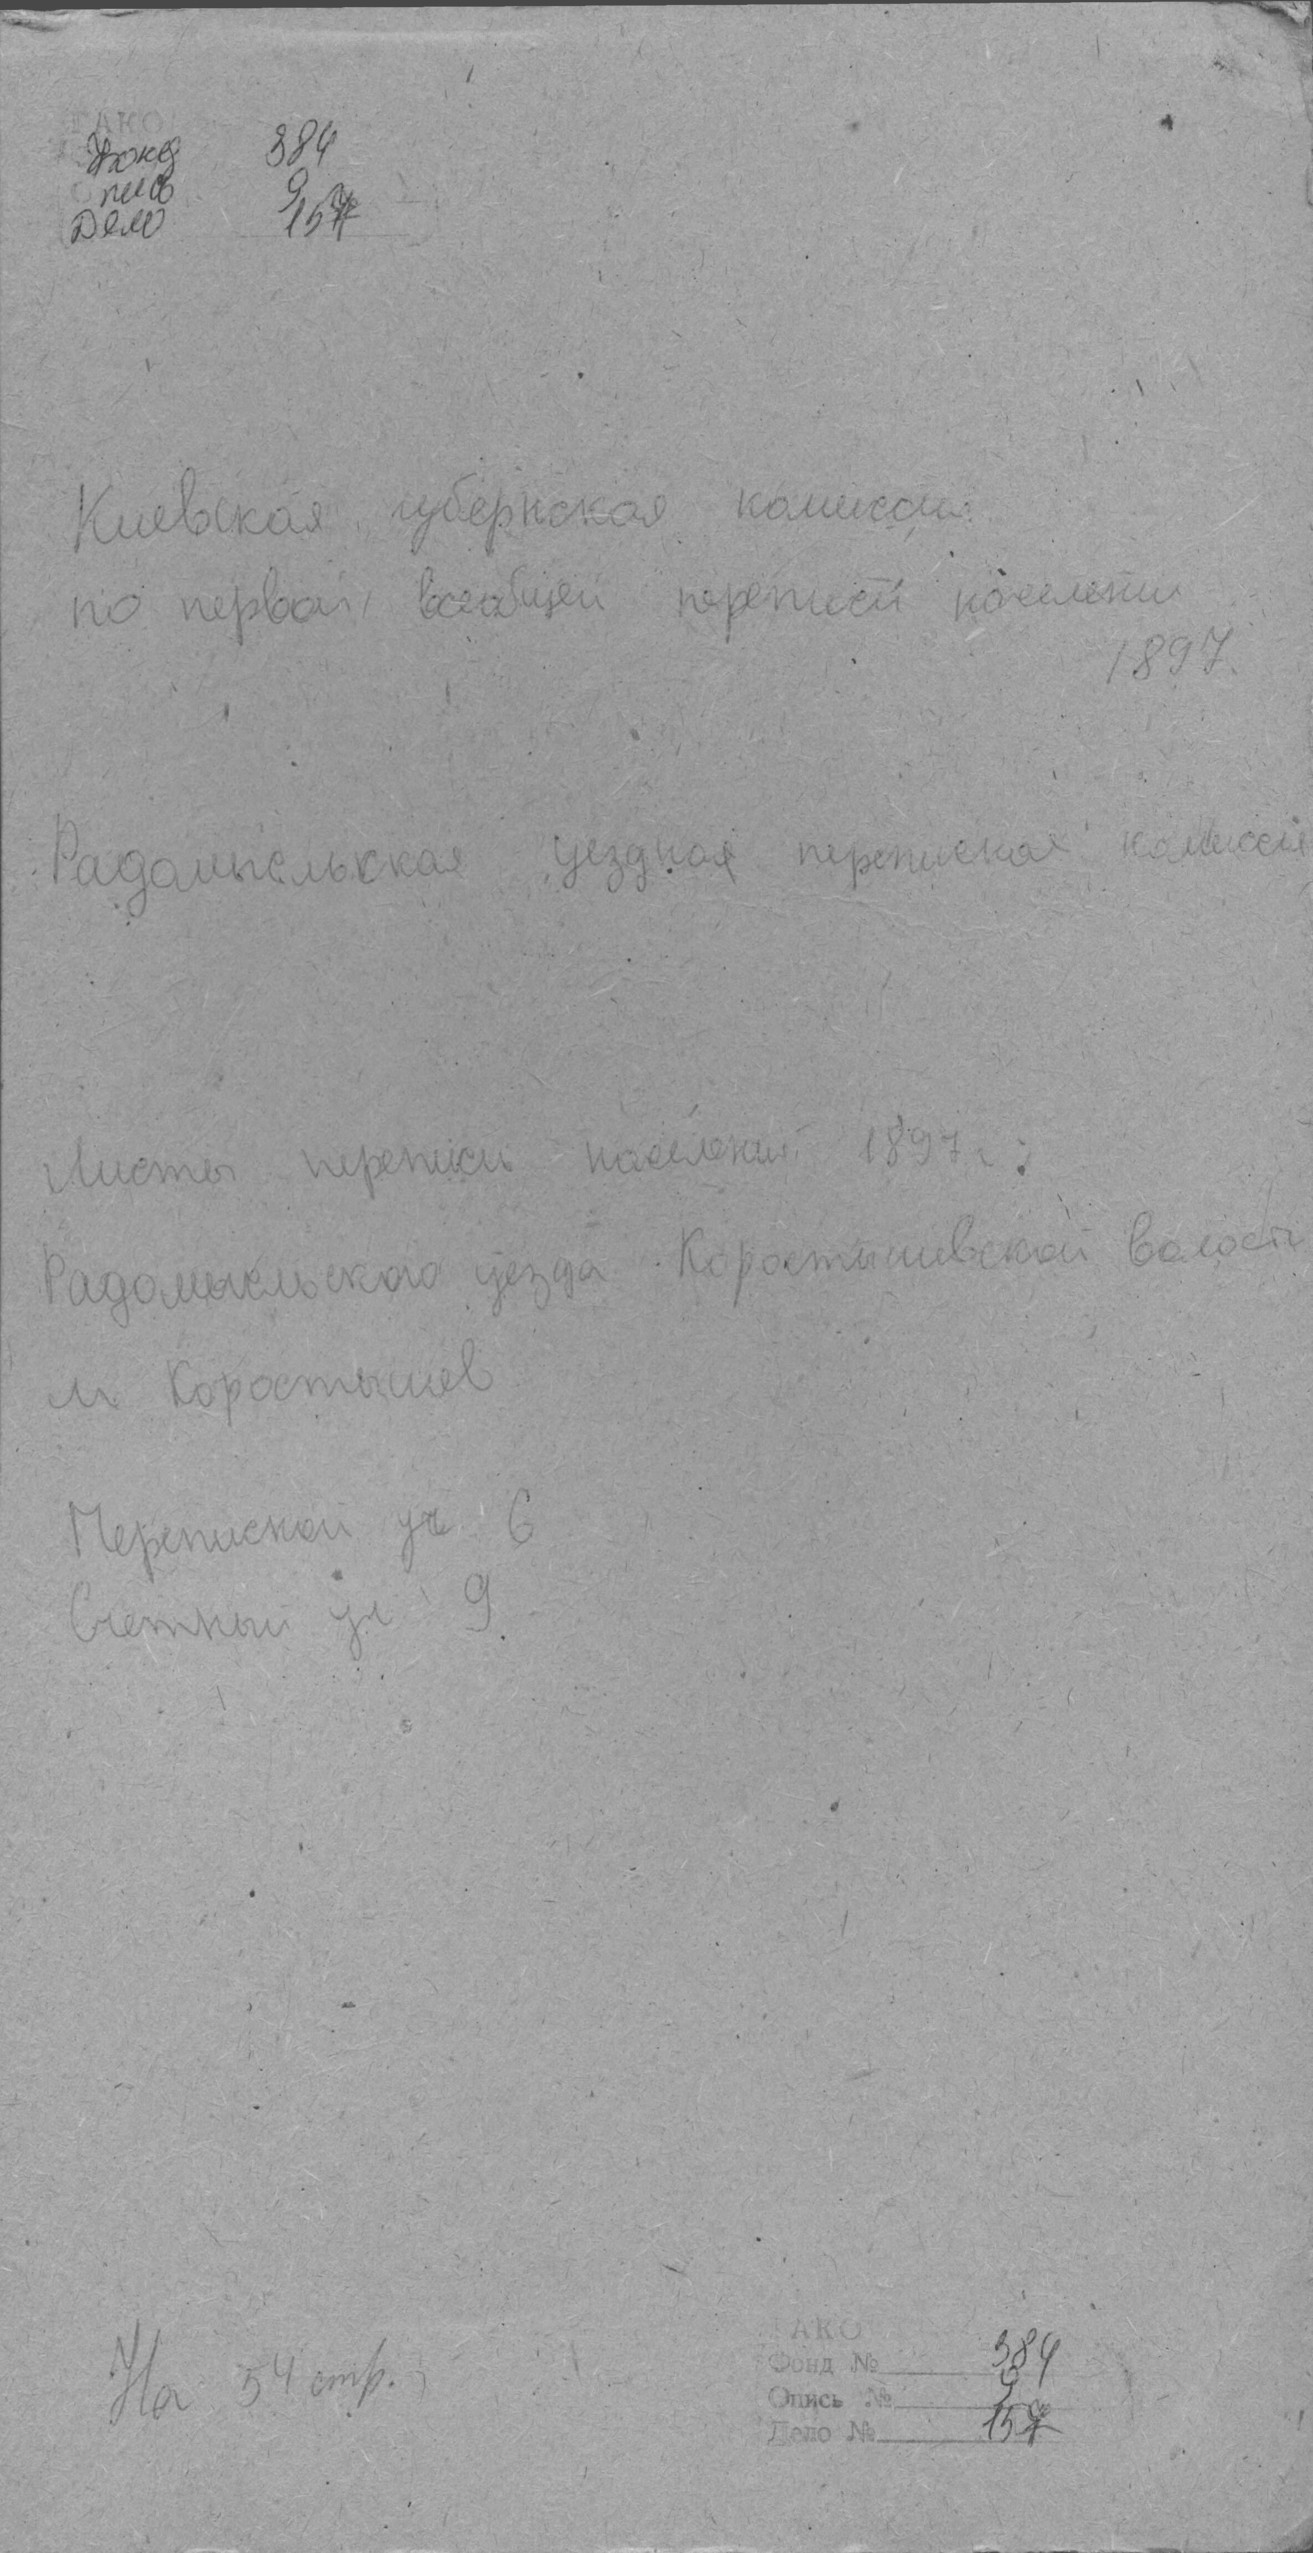 ГАКО
Фонд 384
Опись 9
Дело 157
Киевская губернская комиссия
по первой всеобщей переписи населения
1897
Радомысльская уездная переписная комиссия
Листы переписи населения 1897 г:
Радомысльского уезда Коростышевской волости
м Коростышев
Переписной уч 6
Счетный уч 9
На 54 стр.
ГАКО
Фонд № 384
Опись № 9
Дело № 157